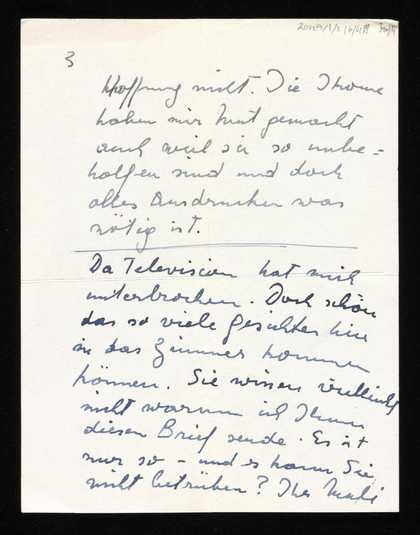 3
Hoffnung nicht. Die Ikone
haben mir Mut gemacht
auch weil sie so unbe=
holfen sind und doch
alles Ausdrucken was
nötig ist.
Da Television hat mich
unterbrochen. Doch schön
das so viele Gesichter hin
in das Zimmer kommen
können. Sie wissen vielleicht
nicht warum ich Ihnen
diesen Brief sende. Es ist
nur so – und es kann Sie
nicht betrüben? Ihre